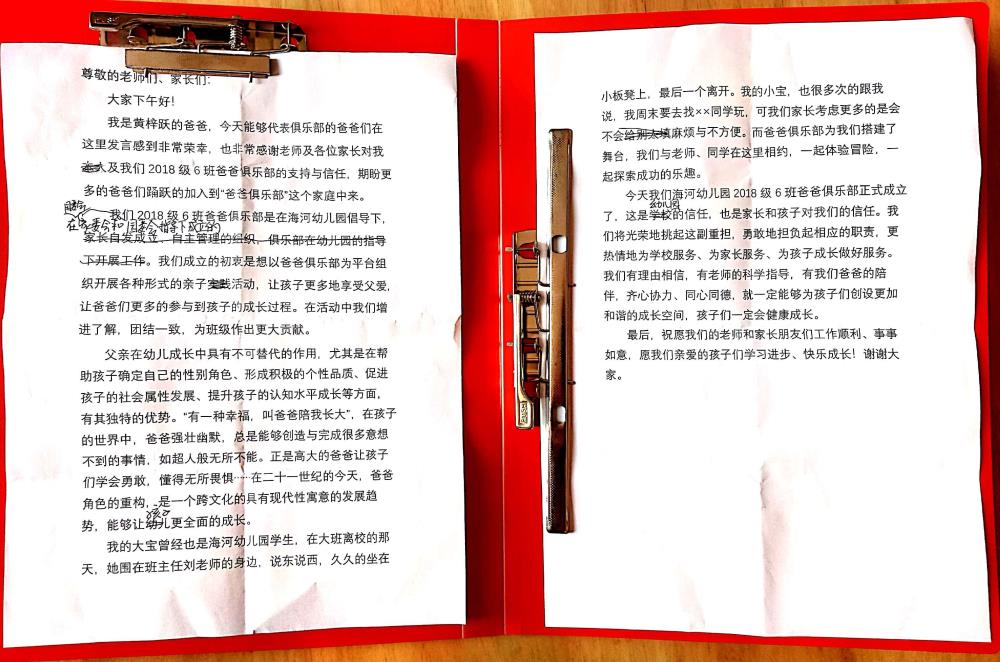 尊敬的老师们、家长们：
大家下午好！
我是黄梓跃的爸爸，今天能够代表俱乐部的爸爸们在
这里发言感到非常荣幸，也非常感谢老师及各位家长对我
及我们 2018 级 6 班爸爸俱乐部的支持与信任，期盼更
多的爸爸们踊跃的加入到“爸爸俱乐部”这个家庭中来。
我们 2018 级 6 班爸爸俱乐部是在海河幼儿园倡导下，
在家委会和园委会指导下成立的
家长自发成立、自主管理的组织，俱乐部在幼儿园的指导
下开展工作。我们成立的初衷是想以爸爸俱乐部为平台组
织开展各种形式的亲子实践活动，让孩子更多地享受父爱，
让爸爸们更多的参与到孩子的成长过程。在活动中我们增
进了解，团结一致，为班级作出更大贡献。
父亲在幼儿成长中具有不可替代的作用，尤其是在帮
助孩子确定自己的性别角色、形成积极的个性品质、促进
孩子的社会属性发展、提升孩子的认知水平成长等方面，
有其独特的优势。“有一种幸福，叫爸爸陪我长大”，在孩子
的世界中，爸爸强壮幽默，总是能够创造与完成很多意想
不到的事情，如超人般无所不能。正是高大的爸爸让孩子
们学会勇敢，懂得无所畏惧……在二十一世纪的今天，爸爸
角色的重构，是一个跨文化的具有现代性寓意的发展趋
孩子
势，能够让幼儿更全面的成长。
我的大宝曾经也是海河幼儿园学生，在大班离校的那
天，她围在班主任刘老师的身边，说东说西，久久的坐在
小板凳上，最后一个离开。我的小宝，也很多次的跟我
说，我周末要去找××同学玩，可我们家长考虑更多的是会
不会给别人填麻烦与不方便。而爸爸俱乐部为我们搭建了
舞台，我们与老师、同学在这里相约，一起体验冒险，一
起探索成功的乐趣。
今天我们海河幼儿园 2018 级 6 班爸爸俱乐部正式成立
幼儿园
了，这是学校的信任，也是家长和孩子对我们的信任。我
们将光荣地挑起这副重担，勇敢地担负起相应的职责，更
热情地为学校服务、为家长服务、为孩子成长做好服务。
我们有理由相信，有老师的科学指导，有我们爸爸的陪
伴，齐心协力、同心同德，就一定能够为孩子们创设更加
和谐的成长空间，孩子们一定会健康成长。
最后，祝愿我们的老师和家长朋友们工作顺利、事事
如意，愿我们亲爱的孩子们学习进步、快乐成长！谢谢大
家。